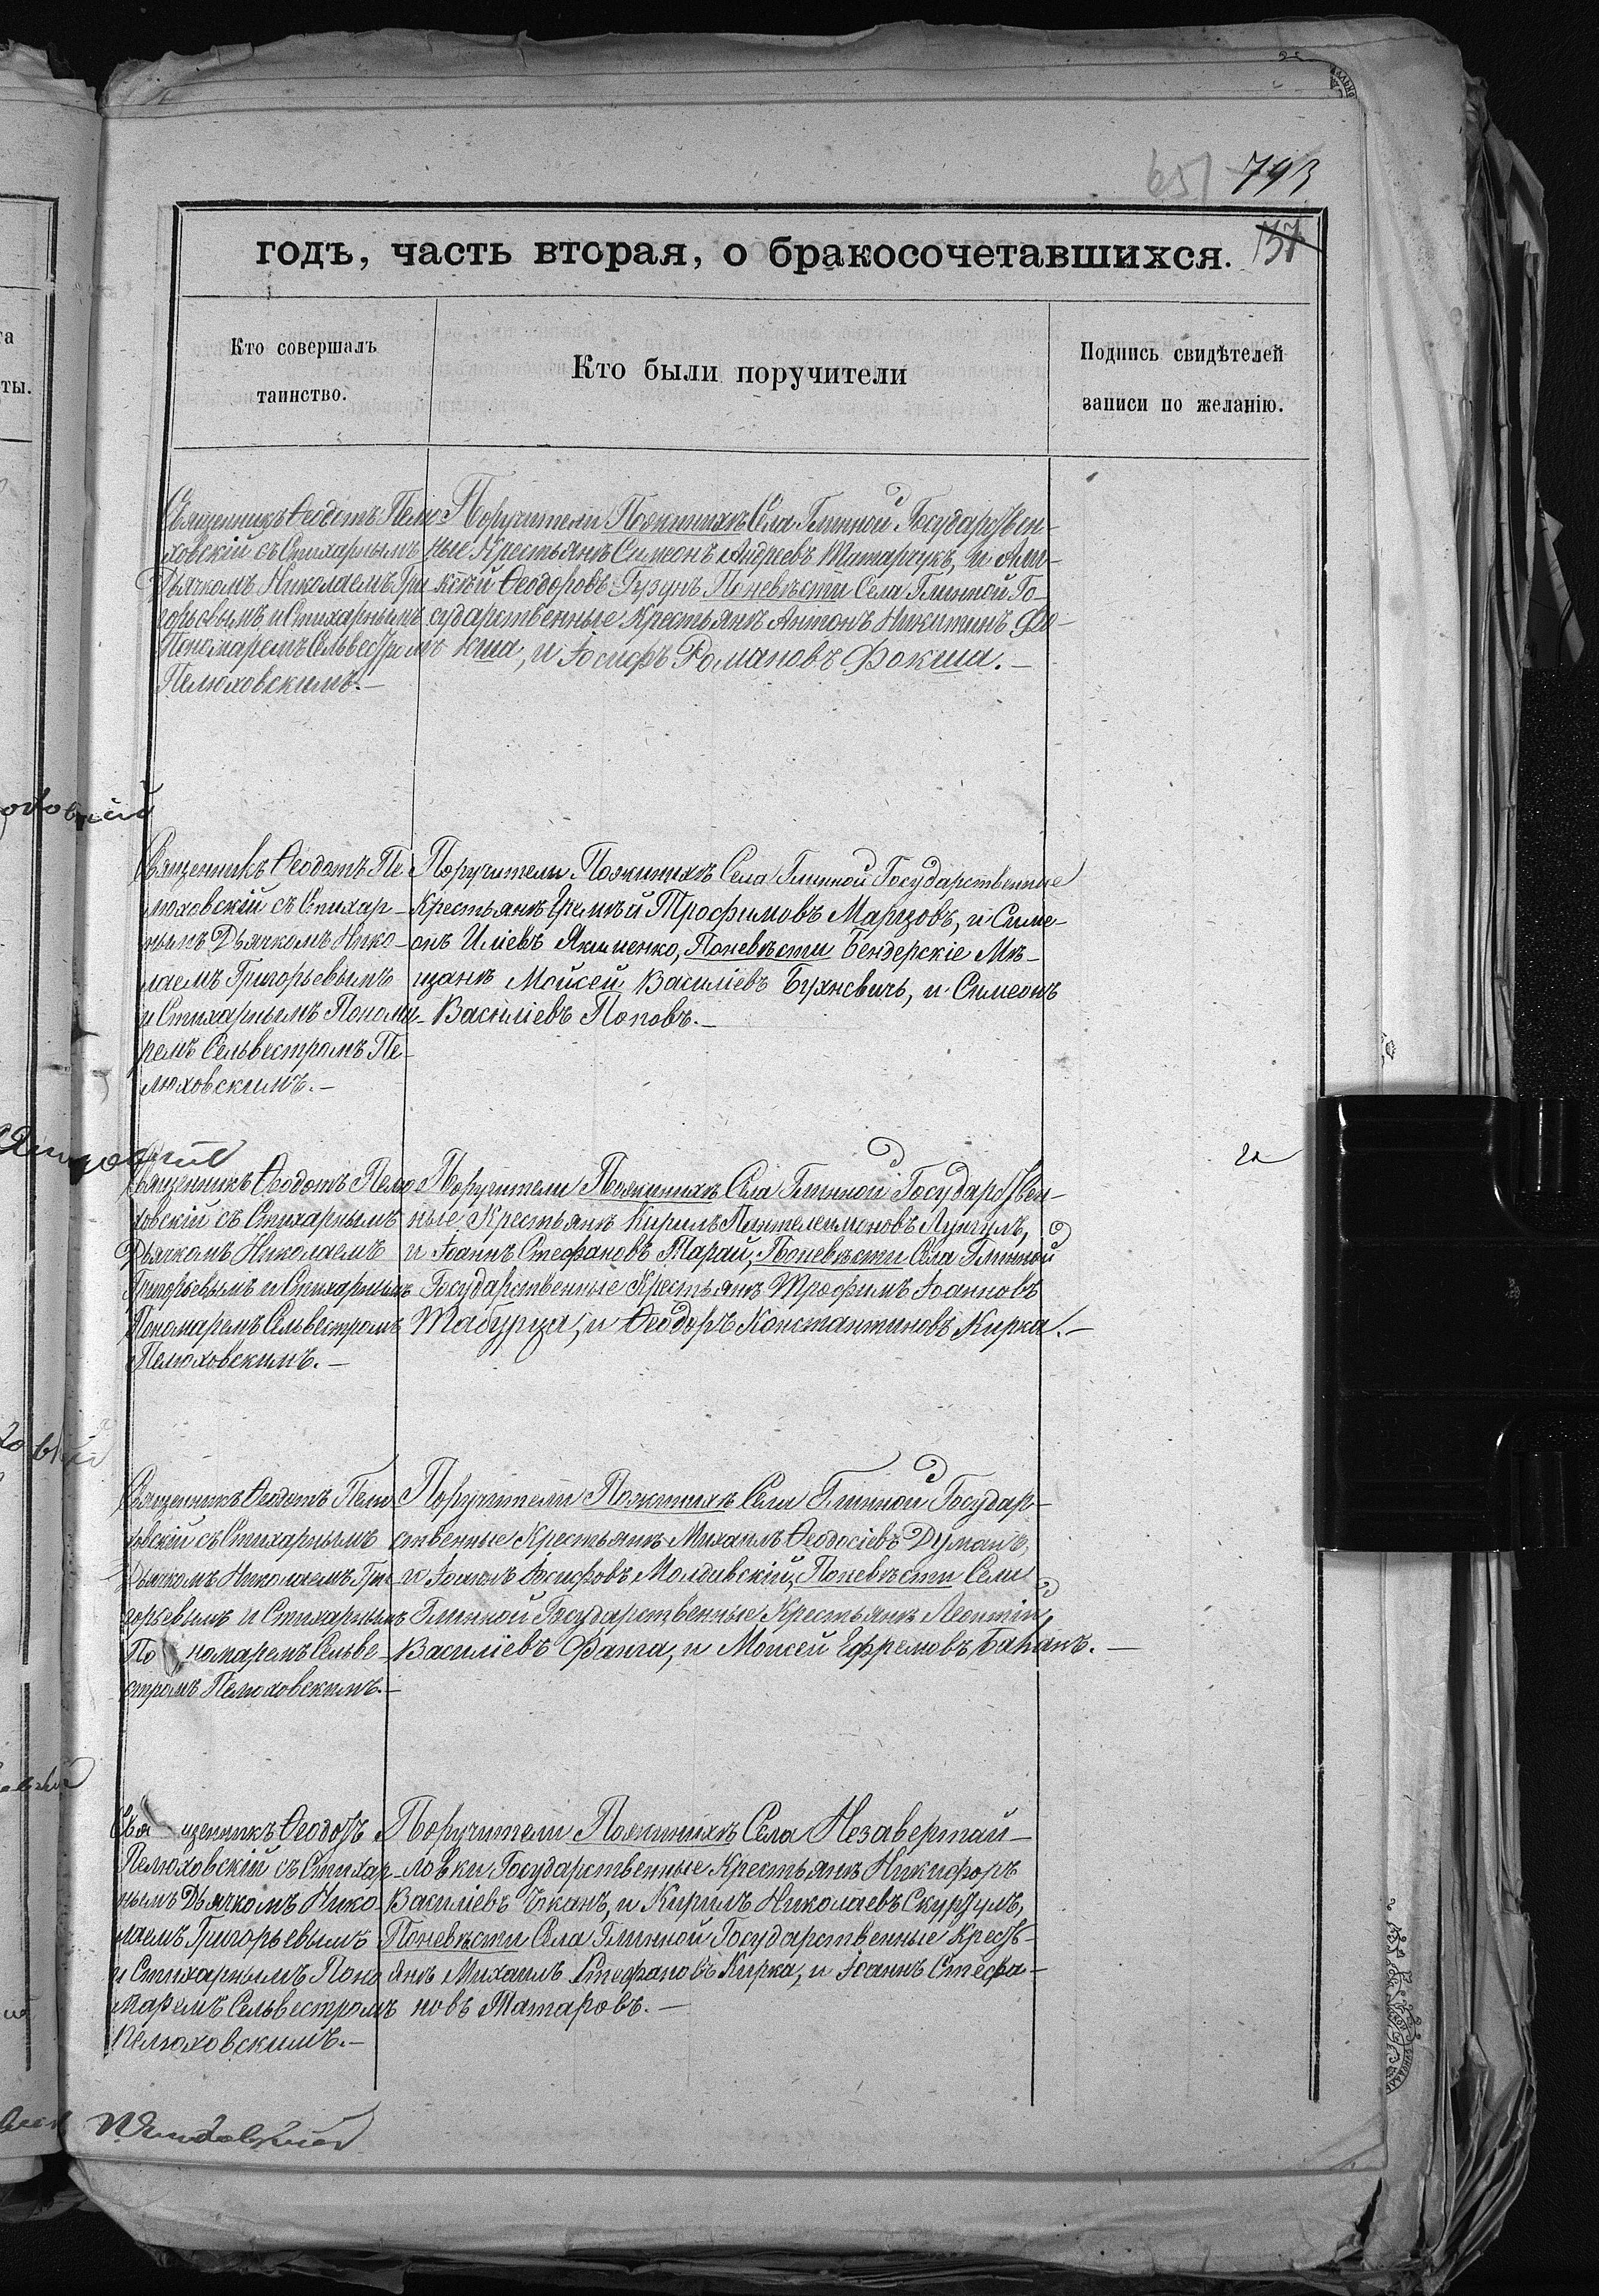 651 793
137
годъ, часть вторая, о бракосочетавшихся.
Кто совершалъ
таинство.
Кто были поручители
Подпись свидѣтелей
записи по желанію.
Священникъ Ѳеодотъ Пелю-
ховскій съ Стихарнымъ
Дьячкомъ Николаемъ Гри
горьевымъ и Стихарнымъ
Пономаремъ Сельвестромъ
Пелюховскимъ.—
Поручители По женихѣ Села Глиной Государствен-
ные Крестьянѣ Симеонъ Андреевъ Татарчукъ, и
Ѳеодоровъ По невѣсти Села Глиной Го-
сударственные Крестьянѣ Антонъ Никитинъ Фо-
кша, и Іосифъ Романовъ Фокша.—
Священникъ Ѳеодотъ Пе-
люховскій съ Стихар-
нымъ Дьячкомъ Нико-
лаемъ Григорьевымъ
и Стихарнымъ Понома-
ремъ Сельвестромъ Пе-
люховскимъ.—
Поручители По женихѣ Села Глиной Государственные
Крестьянѣ Еремѣй Трофимовъ и Симе-
онъ Иліевъ Якименко, По невѣсти Бендерскіе Мѣ-
щанѣ Мойсей Василіевъ и Симеонъ
Василіевъ Поповъ.—
Священникъ Ѳеодотъ Пелю-
ховскій съ Стихарнымъ
Дьячкомъ Николаемъ
Григорьевымъ и Стихарнымъ
Пономаремъ Сельвестромъ
Пелюховскимъ.—
Поручители По женихѣ Села Глиной Государствен-
ные Крестьянѣ Кирилъ Пантелеимоновъ Лунгулъ,
и Іоаннъ Стефановъ Таран, По невѣсти Села Глиной
Государственные Крестьянѣ Трофимъ Іоанновъ
Табурца, и Ѳеодоръ Константиновъ Кирка.—
Священникъ Ѳеодотъ Пелю-
ховскій съ Стихарнымъ
Дьячкомъ Николаемъ Гри-
горьевымъ и Стихарнымъ
Пономаремъ Сельве-
стромъ Пелюховскимъ.—
Поручители По женихѣ Села Глиной Государ-
ственные Крестьянѣ Михаилъ Ѳеодосіевъ Думанъ,
и Іоаннъ Іосифовъ Молдавскій, По невѣсти Села
Глиной Государственные Крестьянѣ Леонтій
Василіевъ Фанга, и Моисей Ефремовъ —
Священникъ Ѳеодотъ
Пелюховскій съ Стихар-
нымъ Дьячкомъ Нико-
лаемъ Григорьевымъ
и Стихарнымъ Поно-
маремъ Сельвестромъ
Пелюховскимъ.—
Поручители По женихѣ Села Незавертай-
ловки Государственные Крестьянѣ Никифоръ
Василіевъ Чеканъ, и Кирилъ Николаевъ Скуртулъ,
По невѣсти Села Глиной Государственные Кресть-
янѣ Михаилъ Стефановъ Кирка, и Іоаннъ Стефа-
новъ Татаровъ.—